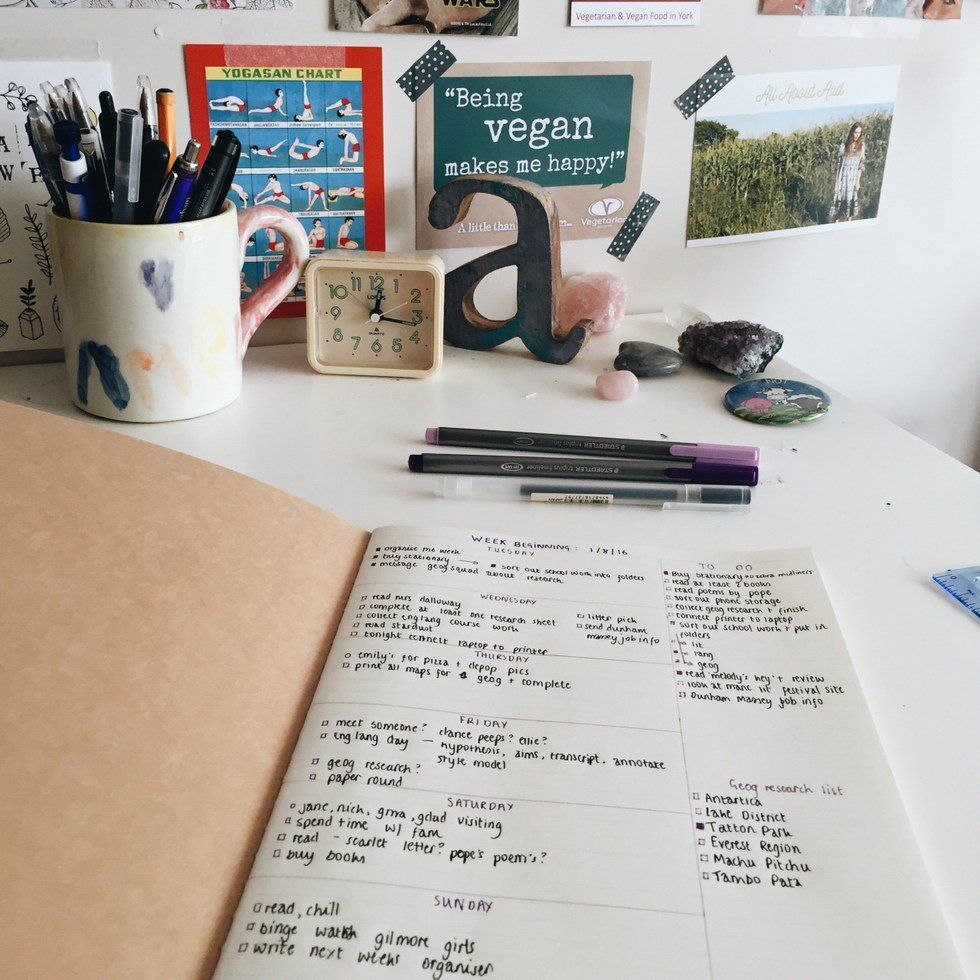 WARS
Vegetarian & Vegan Food in York
YOGASAN CHART
"Being
vegan
makes me happy!"
A little than
Vegetarian
All About Aud
10 11 12 1 2 3 4 5 6 7 8 9
LOTUS
QUARTZ
a
me
NO!
STAEDTLER triplus fineliner
STAEDTLER triplus fineliner
WEEK BEGINNING: 1/8/16
TUESDAY
organise me week
buy stationary → sort out school work into folders
message geog squad about research
WEDNESDAY
read mrs dalloway
complete at least one research sheet
collect eng lang course work
read stardust
tonight connect laptop to printer
litter pick
send dunham
massey job info
THURSDAY
emily's for pizza + depop pics
print all maps for geog + complete
FRIDAY
meet someone? dance peeps? ellie?
eng lang day – hypothesis, aims, transcript, annotate
style model
geog research?
paper round
SATURDAY
jane, nich, gma, gdad visiting
spend time w/ fam
read - scarlet letter? pope's poem's?
buy books
SUNDAY
read, chill
binge watch gilmore girls
write next weeks organiser
TO DO
Buy stationary zebra midliners
read at least 2 books
read poems by pope
sort out phone storage
collect geog research + finish
connect printer to laptop
sort out school work + put in
folders
lit
lang
geog
read 'melody's key' + review
look at manc lit festival site
Dunham Massey job info
Geog research list
Antartica
Lake District
Tatton Park
Everest Region
Machu Pitchu
Tambo Pata